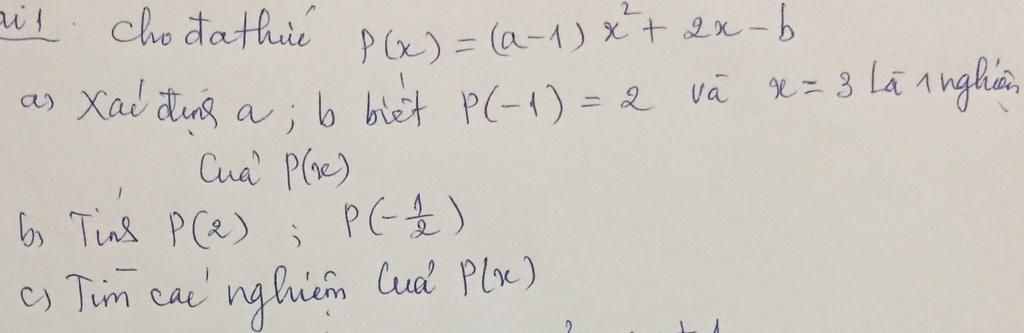 ài 1. Cho đa thức P(x) = (a-1) x² + 2x - b
a) Xác định a ; b biết P(-1) = 2 và x = 3 là 1 nghiệm
của P(x)
b) Tính P(2) ; P(-1/2)
c) Tìm các nghiệm của P(x)